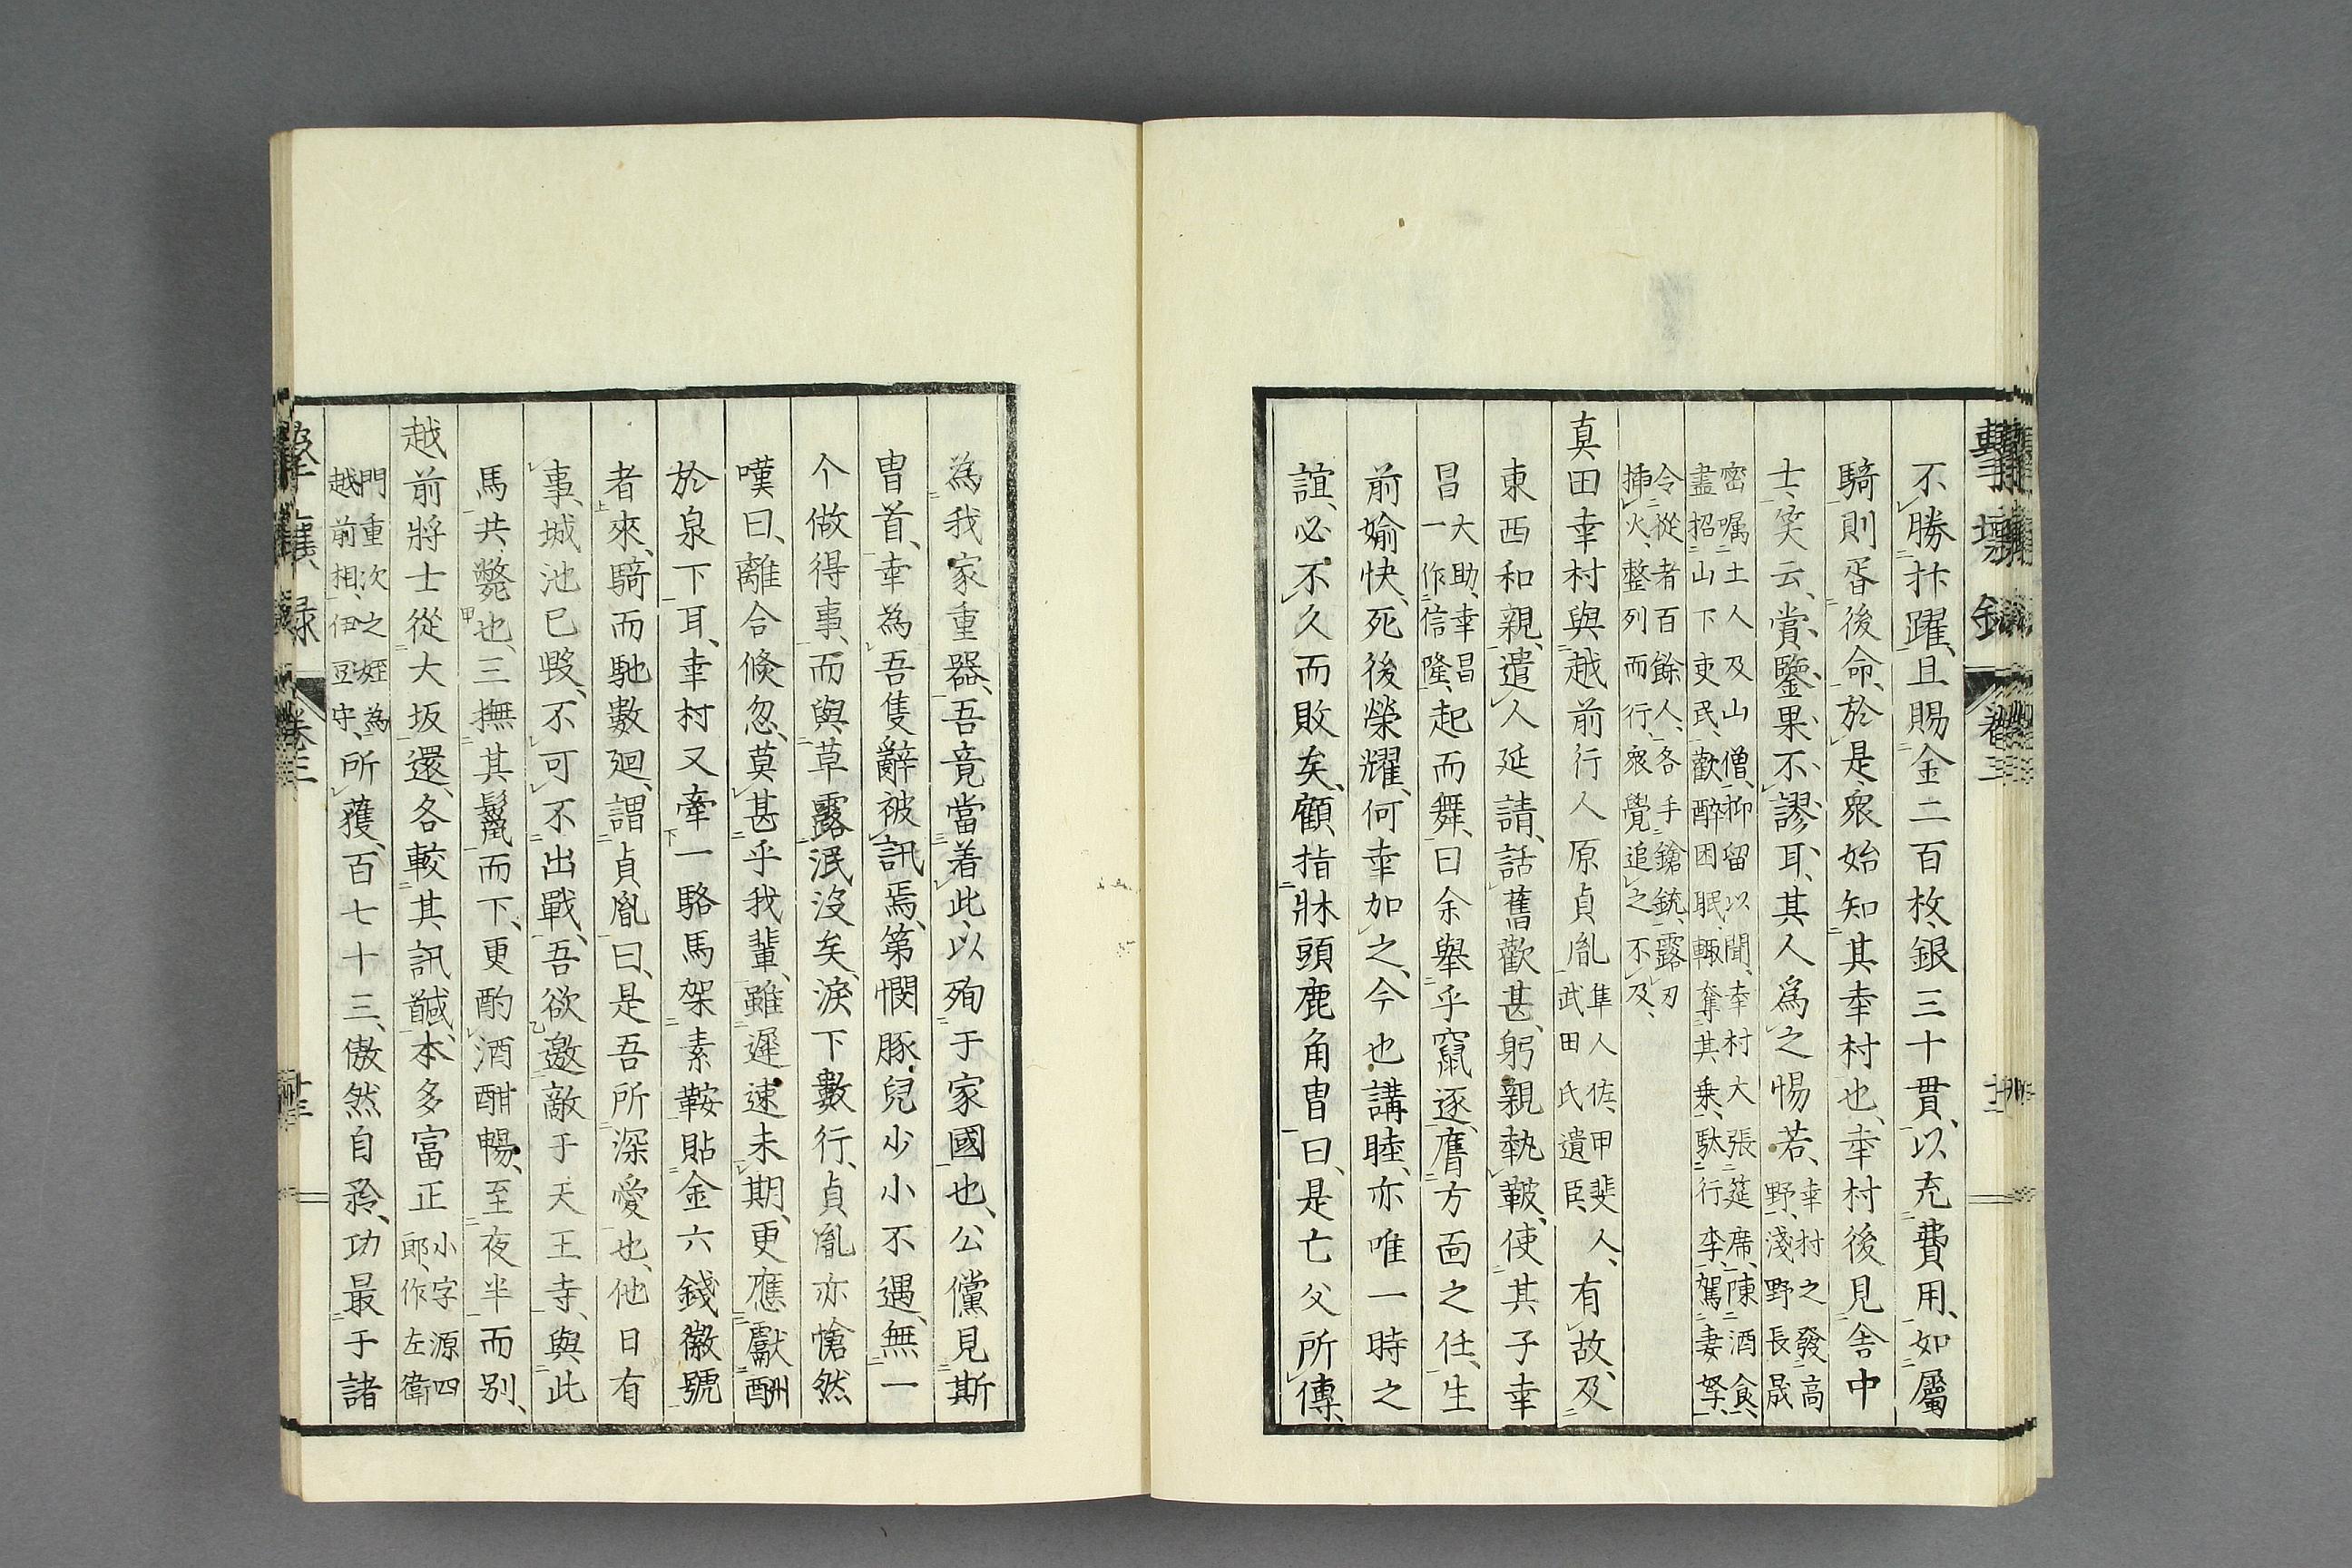 不勝抃躍、且賜金二百枚、銀三十貫、以充費用、如屬
騎則胥後命、於是衆始知其幸村也、幸村後見舎中
士、笑云、賞鑒果不謬耳、其人為之惕若、幸村之發高野、淺野長晟
密嘱土人及山僧、抑留以聞、幸村大張筵席、陳酒食、盡招山下吏民、歡醉困眠、輙奪其乗、駄行李、駕妻孥、
令從者百餘人、各手鎗銃、露刃挿火、整列而行、衆覺追之不及、
真田幸村與越前行人原貞胤隼人佐、甲斐人、武田氏遺臣、有故、及
東西和親、遣人延請、話舊歡甚、躬親執鼓、使其子幸
昌大助、幸昌一作信隆、起而舞、曰余舉乎竄逐、膺方面之任、生
前婾快、死後榮耀、何幸加之、今也講睦、亦唯一時之
誼、必不久而敗矣、顧指牀頭鹿角冑曰、是亡父所傳、
為我家重器、吾竟當着此以殉于家國也、公儻見斯
冑首、幸為吾隻辭被訊焉、第憫豚兒少小不遇、無一
个做得事、而與草露泯沒矣、淚下數行、貞胤亦愴然
嘆曰、離合倏忽、莫甚乎我輩、雖遲速未期、更應獻酬
於泉下耳、幸村又牽一駱馬架素鞍貼金六錢徽號
者來、騎而馳數廻、謂貞胤曰、是吾所深愛也、他日有
事、城池已毀、不可不出戰、吾欲邀敵于天王寺、與此
馬共斃也、三撫其鬣而下、更酌酒酣暢、至夜半而别、
越前將士從大坂還、各較其訊馘、本多富正小字源四郎、作左衛
門重次之姪、為越前相、伊豆守、所獲、百七十三、傲然自矜、功最于諸